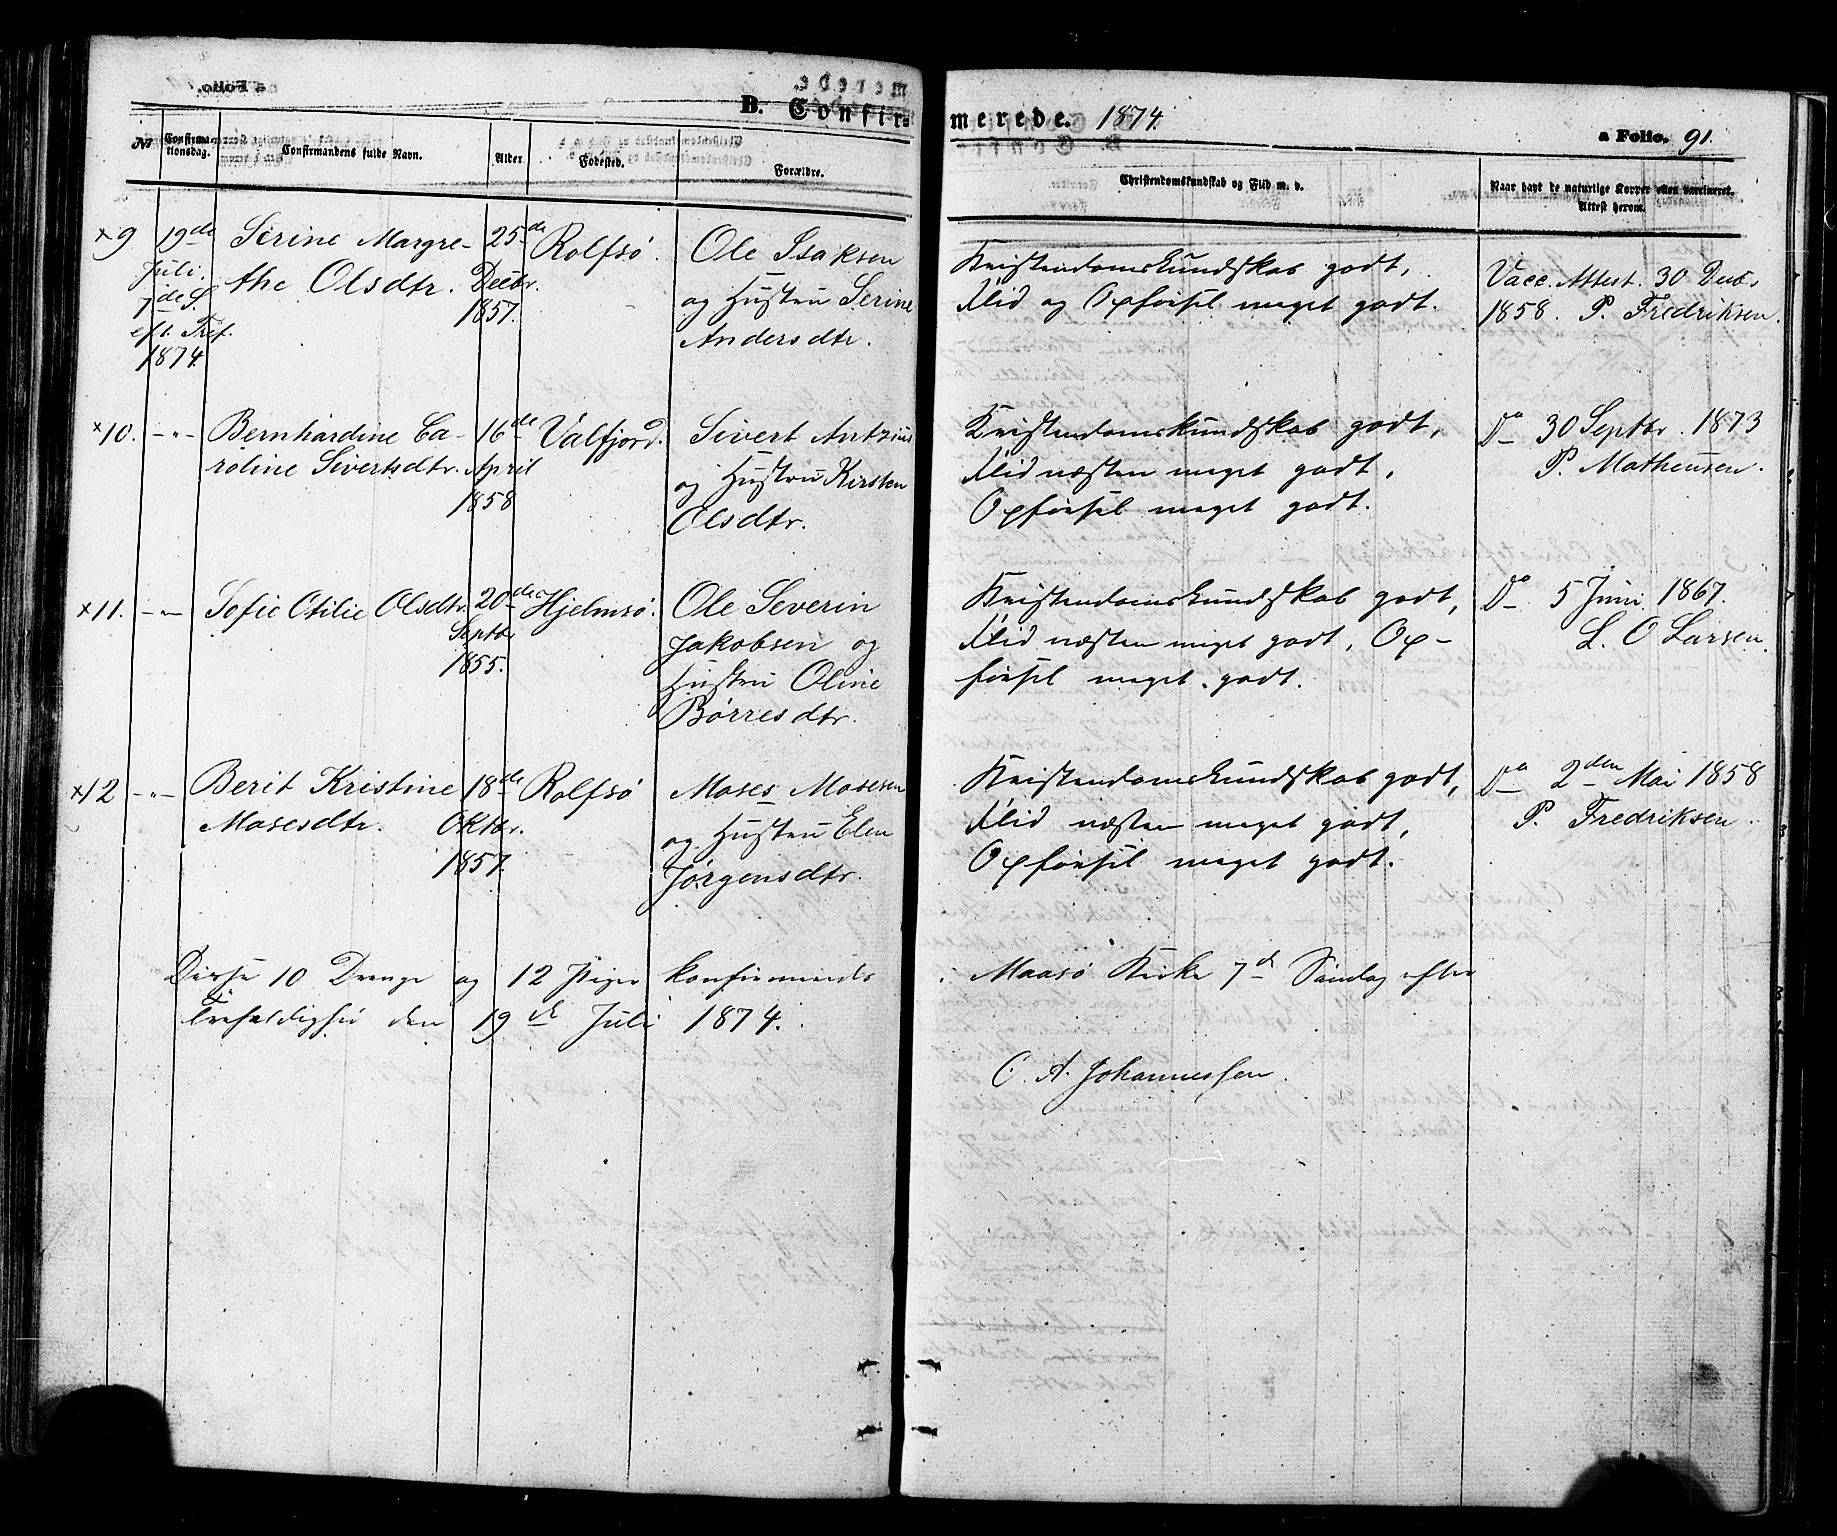 B. Confir=
merede. 1874.
a Folio. 91.
No
Confirma-
tionsdag.
Confirmandens fulde Navn.
Alder
Fødested.
Forældre.
Christendomskundskab og Flid m. v.
Naar havt de naturlige Kopper eller vaccineret.
Attest herom.
×9
19de
Juli.
7de S.
eft. Tref.
1874.
Serine Margre-
the Olsdtr.
25de
Decbr.
1857.
Rolfsø.
Ole Isaksen
og Hustru Serine
Andersdtr.
Kristendomskundskab godt,
Flid og Opførsel meget godt.
Vacc. Attest. 30 Decb.
1858. P. Fredriksen.
×10.
-"-
Bernhardine Ca-
roline Sivertsdtr.
16de
April
1858
Valfjord.
Sivert Antzius
og Hustru Kirsten
Olsdtr.
Kristendomskundskab godt,
Flid næsten meget godt,
Opførsel meget godt.
Do 30 Septbr. 1873
P. Matheusen.
×11.
-"-
Sofie Otilie Olsdtr.
20de
Septbr.
1855.
Hjelmsø.
Ole Severin
Jakobsen og
Hustru Oline
Børresdtr.
Kristendomskundskab godt,
Flid næsten meget godt, Op-
førsel meget godt.
Do 5 Juni 1867.
L. O Larsen.
×12
-"-
Berit Kristine
Mosesdtr.
18de
Oktbr.
1857.
Rolfsø
Moses Mosesen
og Hustru Elen
Jørgensdtr.
Kristendomskundskab godt,
Flid næsten meget godt,
Opførsel meget godt.
Do 2den Mai 1858
P. Fredriksen.
Disse 10 Drenge og 12 Piger konfirmeredes i Maasø Kirke 7de Søndag efter
Trefoldighed den 19de Juli 1874.
C. A. Johannessen.